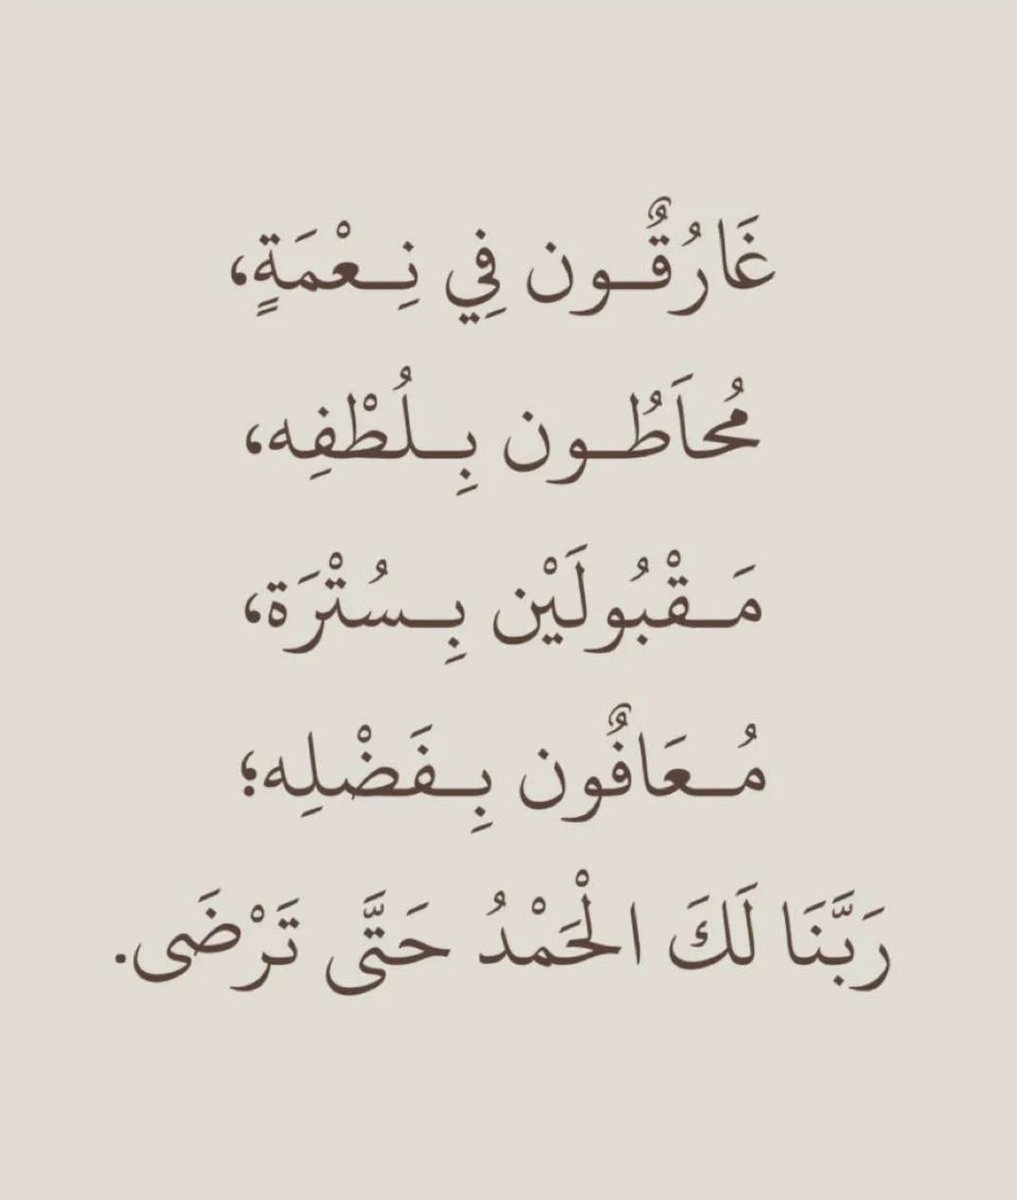 غَارُقٌـون فِي نِـعْمَةٍ،
مُحاَطُـون بِـلُطْفِه،
مَـقْبُولَيْن بِـسُتْرَة،
مُـعَافٌون بِـفَضْلِه؛
رَبَّنَا لَكَ الْحَمْدُ حَتَّى تَرْضَى.